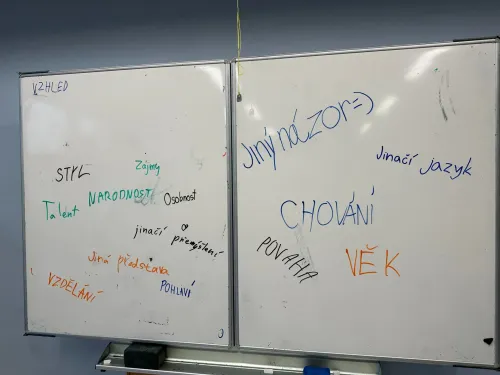 VZHLED
STYL
Zájmy
NÁRODNOST
Osobnost
Talent
jinačí přemýšlení
Jiná představa
VZDĚLÁNÍ
POHLAVÍ
Jiný názor=)
Jinačí jazyk
CHOVÁNÍ
POVAHA
VĚK